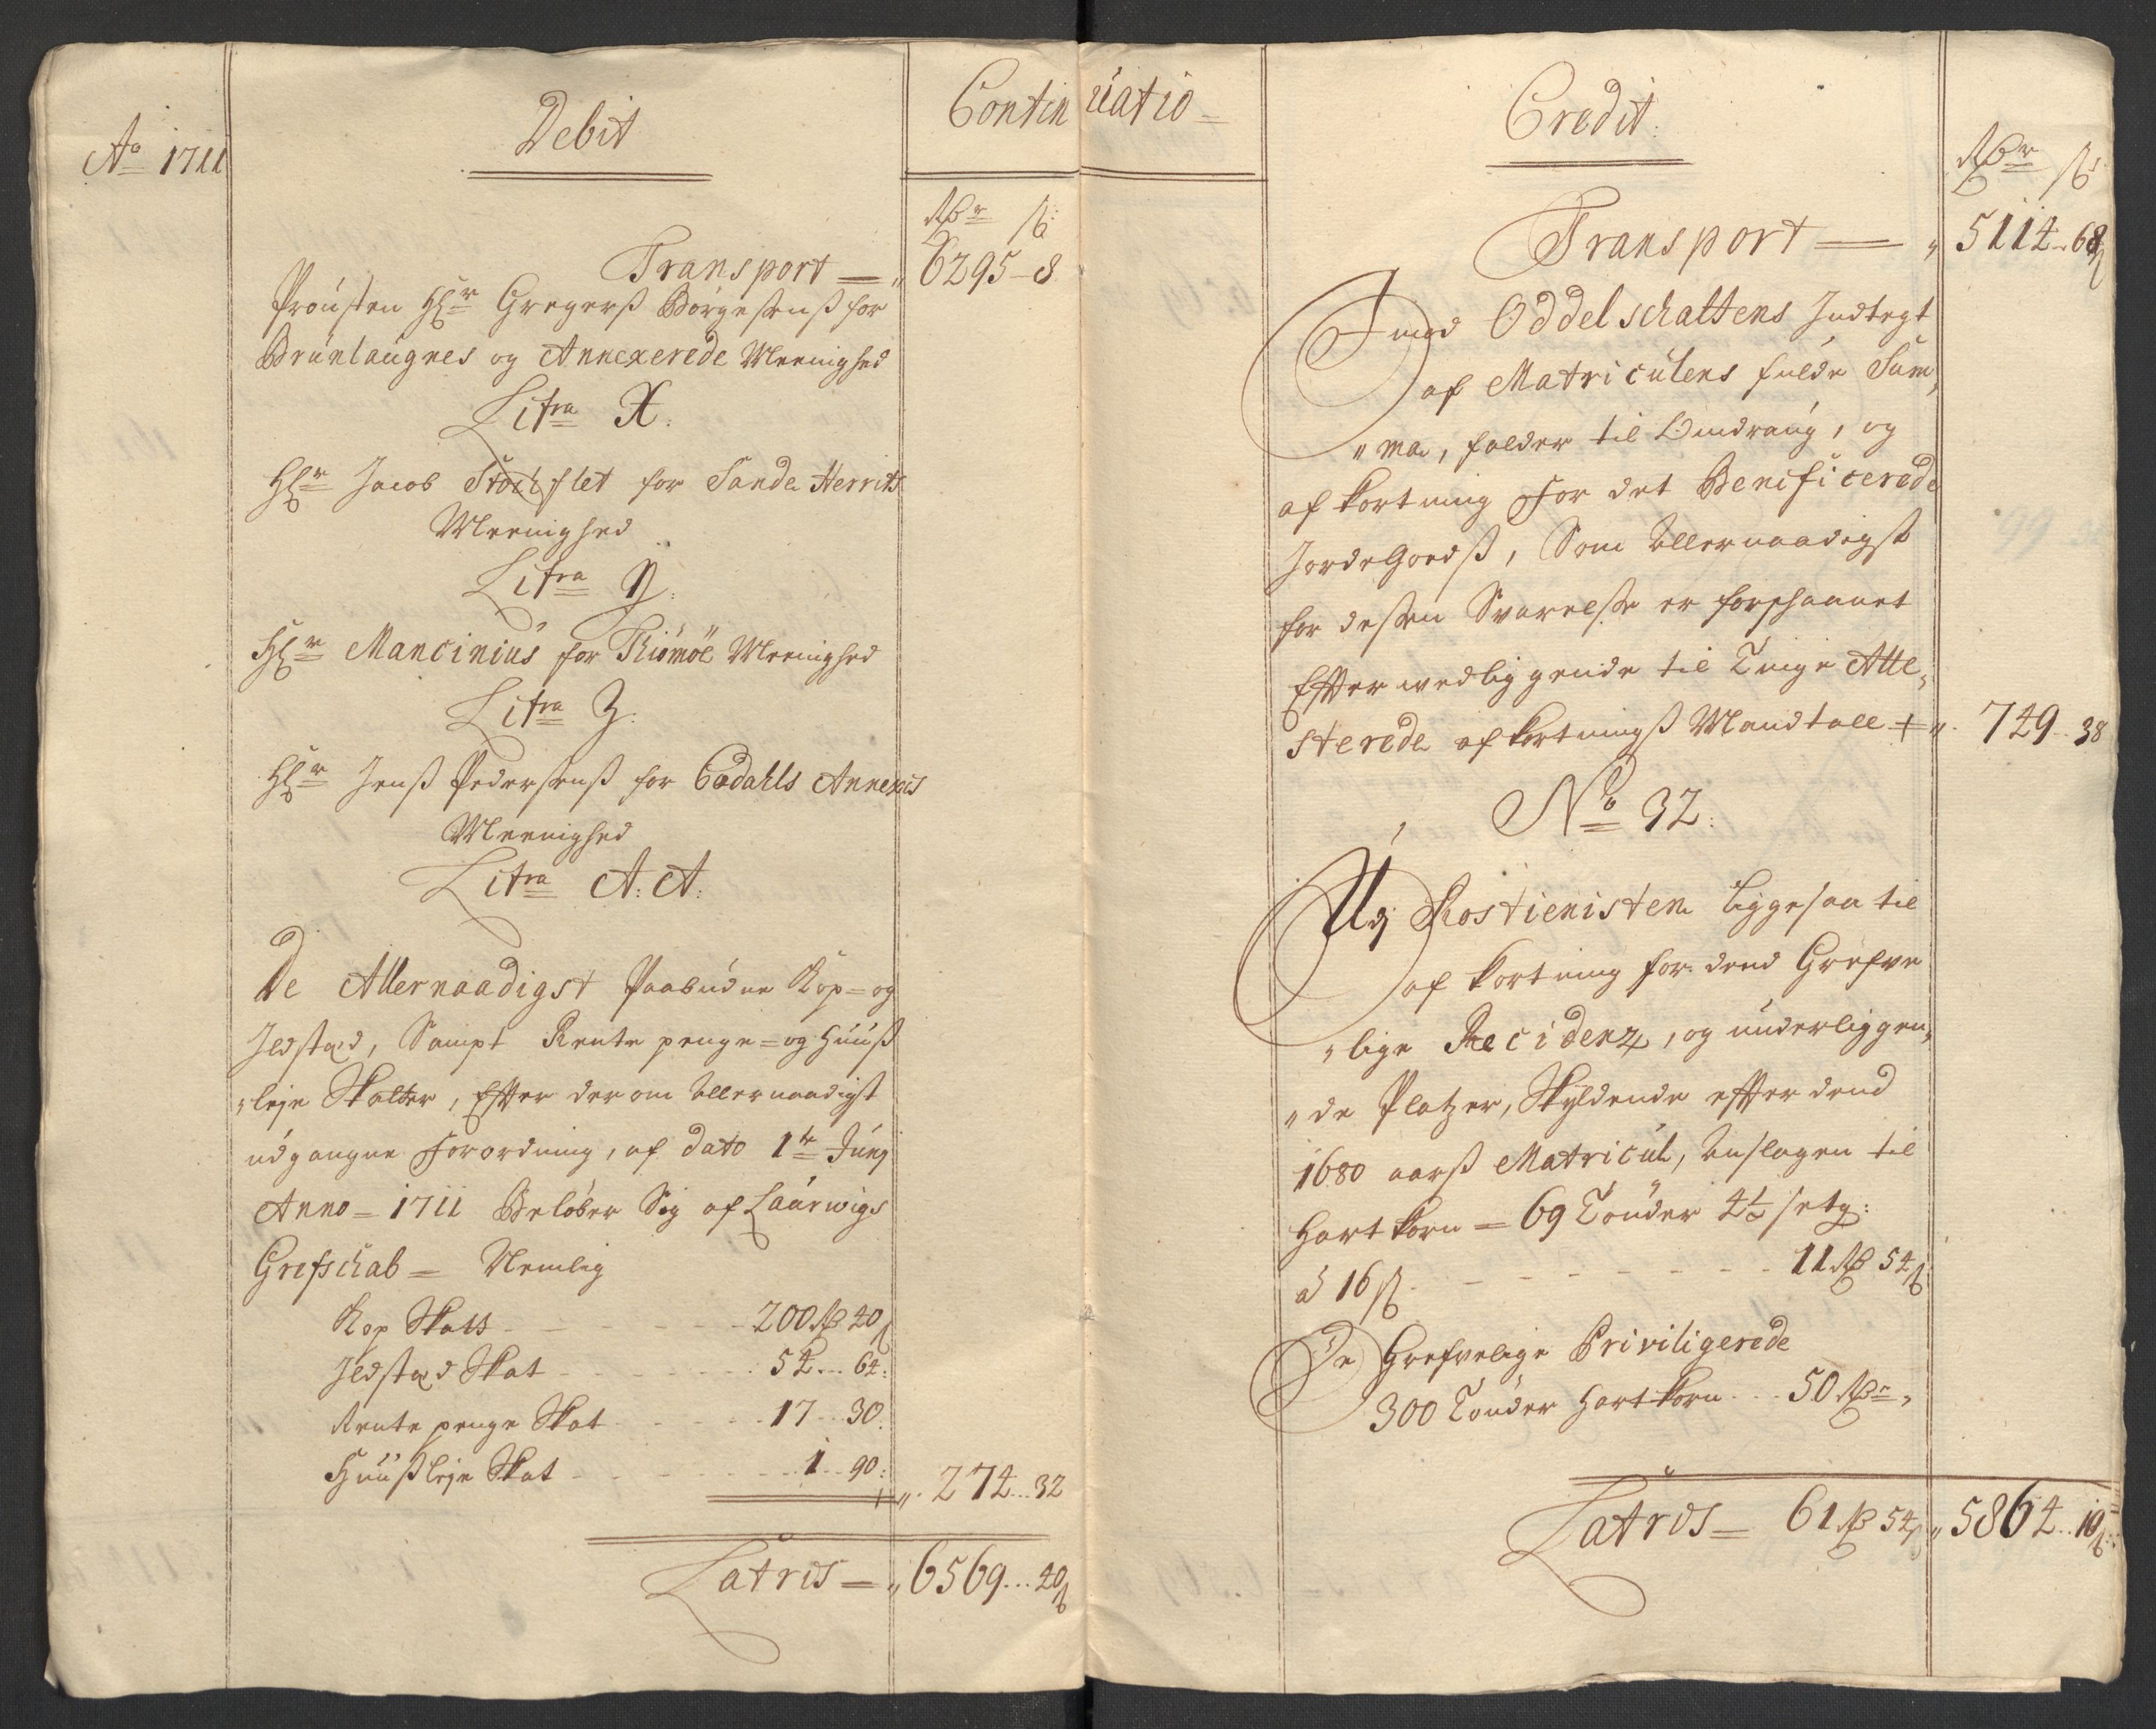 Ao 1711
Debit
Continuatio
Rdr ß:
Transport = 6295 - 8
Proústen Hr Gregerß Börgesenß for
Brúnlaúgnes og Annexerede Meenighed
Litra X:
Hr Jacob Stochflet for Sande Herrits
Meenighed
Litra Y:
Hr Mancinius for Kiömöe Meenighed
Litra Z:
Hr Jenß Pedersenß for Eedahls Annexes
Meenighed
Litra A: A:
De Allernaadigst Paabúdne Kop= og
Ildsted, Sampt Rente penge= og Húúß
leje Skatter, Efter derom allernaadigst
údgangne Forordning, af dato 1te Júnj
Anno = 1711 Beløber Sig af Laúrwigs
Grefschab = Nemlig
Kop Skatt - - - 200 Rd 40 ß
Ildsted Skat - - - 54 .. 64:
Rente penge Skat - - - 17 .. 30.
Húúßleje Skat - - - 1 .. 90:
274 ... 32
Latris = 6569 ... 40 ß
Credit:
Rdr ß
Transport = 5114 .. 68 ß
Imod Oddelschattens Indtegt
af Matriculens fulde Sum,
"ma, falder til
afkortning For det Benificerede
Jordegodß, Som Allernaadigst
for dessen Svarelse er forschaanet
Efter wedliggende til Tinge Atte,
sterede afkortningß Mandtall + 749 .. 38
No 32:
Udj Rostienisten liggesaa til
afkortning for dend Grefve
"lige Recidentz, og únderliggen,
"de Platzer, Skyldende efter dend
1680 aarß Matricúl, Anslagen til
Hartkorn = 69 Tönder 4½ setg:
à 16 ß - - - 11 Rd 54 ß
De Grefvelige Priviligerede
300 Tönder Hartkorn - - 50 Rdr
Latris = 61 Rd 54 ß 5864 .. 10 ß